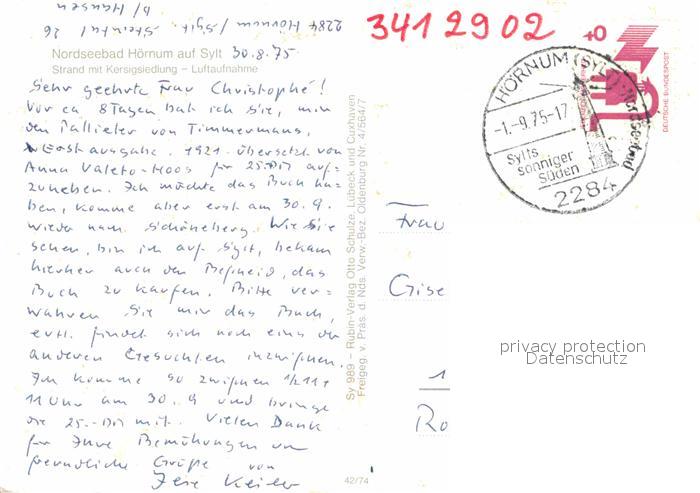 3412902
2284 Hörnum / Sylt 26
b/ Hansen
Nordseebad Hörnum auf Sylt 30.8.75
Strand mit Kersigsiedlung – Luftaufnahme
Sehr geehrte Frau Christophé!
Vor ca 8 Tagen bat ich Sie, mir
den Pallieter von Timmermans,
Erstausgabe. 1921. übersetzt von
Anna Valeto-Hoos für 25.-DM auf-
zuheben. Ich möchte das Buch ha-
ben, komme aber erst am 30.9.
wieder nach Schöneberg. Wie Sie
sehen, bin ich auf Sylt, bekam
hierher auch den Bescheid, das
Buch zu kaufen. Bitte ver-
wahren Sie mir das Buch,
evtl. findet sich noch eins der
anderen Gesuchten inzwischen.
Ich komme so zwischen 1/2 11 +
11 Uhr am 30.9 und bringe
die 25.-DM mit. Vielen Dank
für Ihre Bemühungen und
freundliche Grüße von
42/74
Sy 989 – Rubin-Verlag Otto Schulze, Lübeck und Cuxhaven
Freigeg. v. Präs. d. Nds. Verw.-Bez. Oldenburg Nr. 4/564/7
HÖRNUM (SYLT) Nordseebad
-1.-9.75-17
Sylts
sonniger
Süden
2284
DEUTSCHE BUNDESPOST
Frau
Gise
1
Ro
privacy protection
Datenschutz